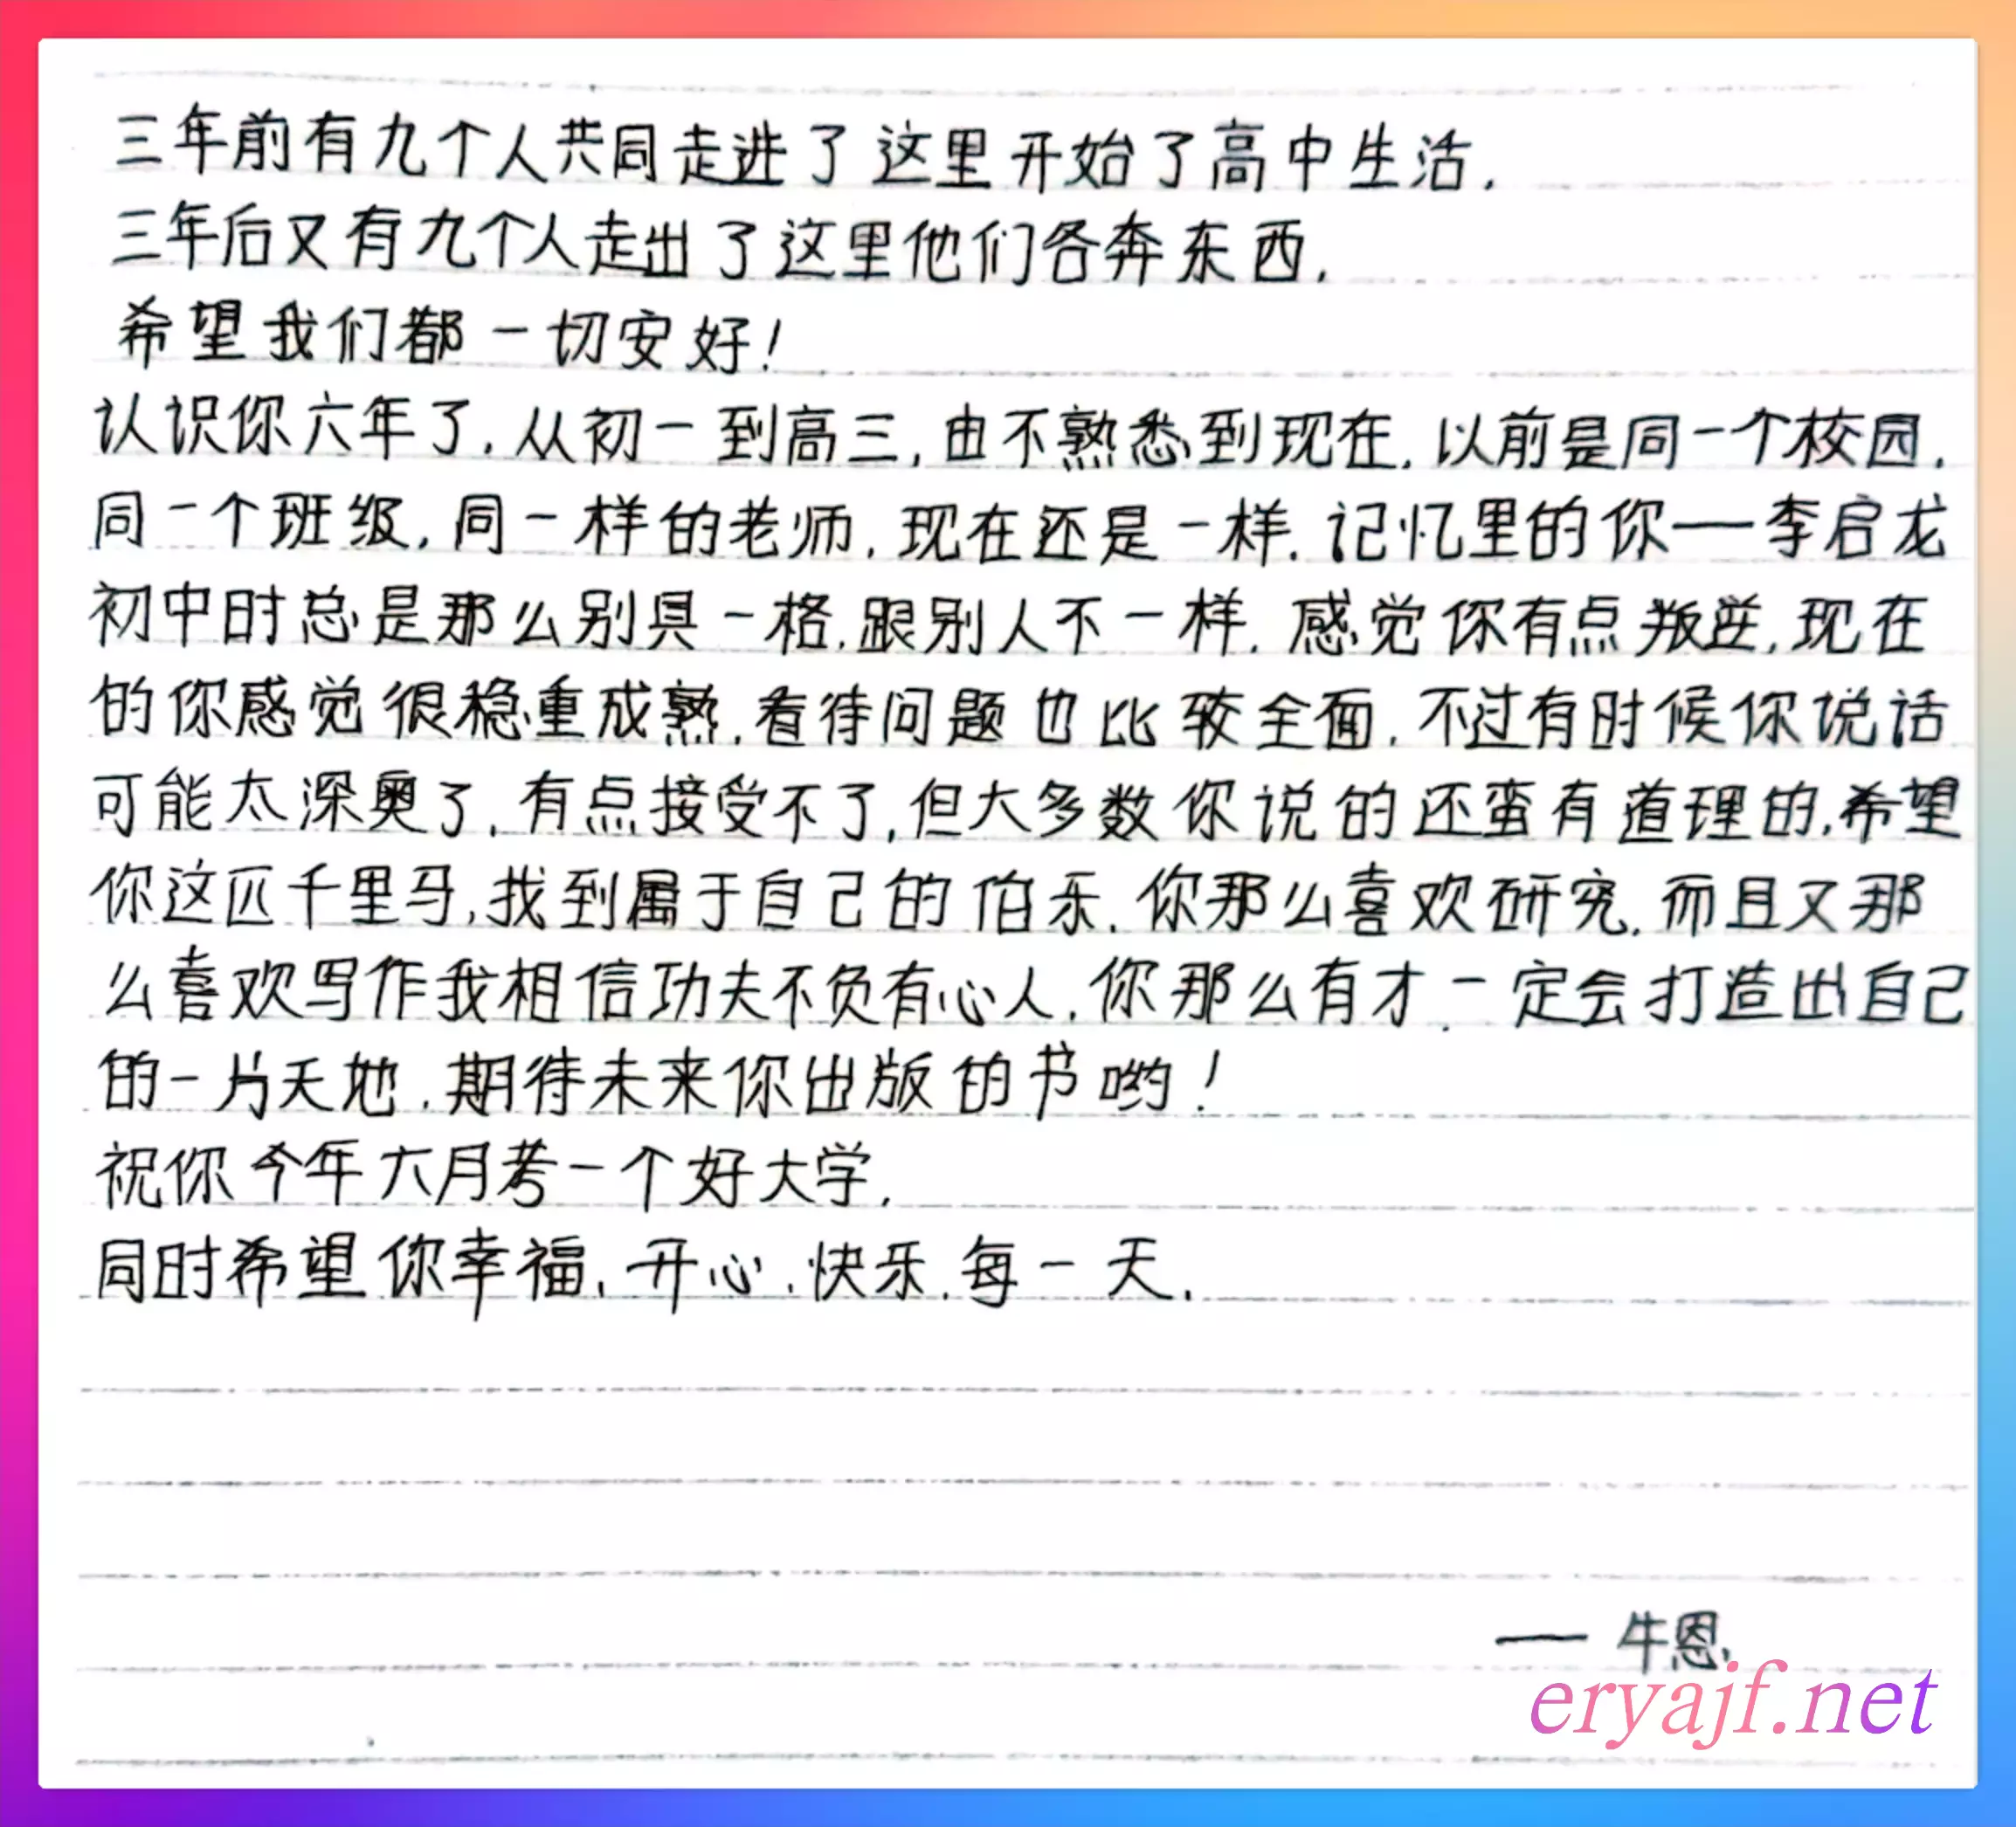 三年前有九个人共同走进了这里开始了高中生活.
三年后又有九个人走出了这里他们各奔东西.
希望我们都一切安好!
认识你六年了,从初一到高三,由不熟悉到现在,以前是同一个校园.
同一个班级,同一样的老师,现在还是一样.记忆里的你——李启龙
初中时总是那么别具一格,跟别人不一样.感觉你有点叛逆,现在
的你感觉很稳重成熟,看待问题也比较全面,不过有时候你说话
可能太深奥了,有点接受不了,但大多数你说的还蛮有道理的,希望
你这匹千里马,找到属于自己的伯乐.你那么喜欢研究,而且又那
么喜欢写作我相信功夫不负有心人.你那么有才一定会打造出自己
的一片天地,期待未来你出版的书哟!
祝你今年六月考一个好大学.
同时希望你幸福、开心、快乐.每一天.
——牛恩.
eryajf.net